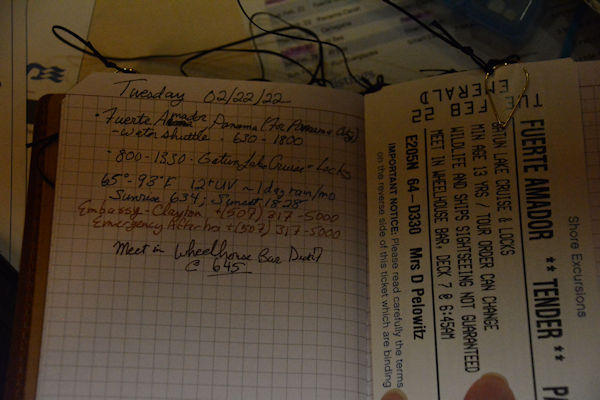 Tuesday 02/22/22
• Fuerte Amador Panama (For Panama City)
- water shuttle • 630 - 1800
• 800-1330 - Gatun Lake Cruise + Locks
65°-93°F 12+UV ~1 day rain/mo
Sunrise 634; Sunset 18:28
Embassy - Clayton +(507) 317-5000
Emergency Attache +(507) 317-5000
Meet in Wheelhouse Bar Deck 7
@ 645
Shore Excursions
FUERTE AMADOR ** TENDER ** PA
TUE FEB 22
EMERALD
GATUN LAKE CRUISE & LOCKS
MIN AGE 13 YRS / TOUR ORDER CAN CHANGE
WILDLIFE AND SHIPS SIGHTSEEING NOT GUARANTEED
MEET IN WHEELHOUSE BAR, DECK 7 @ 6:45AM
E205N 64-D330 Mrs D Pelowitz
IMPORTANT NOTICE: Please read carefully the terms
on the reverse side of this ticket which are binding